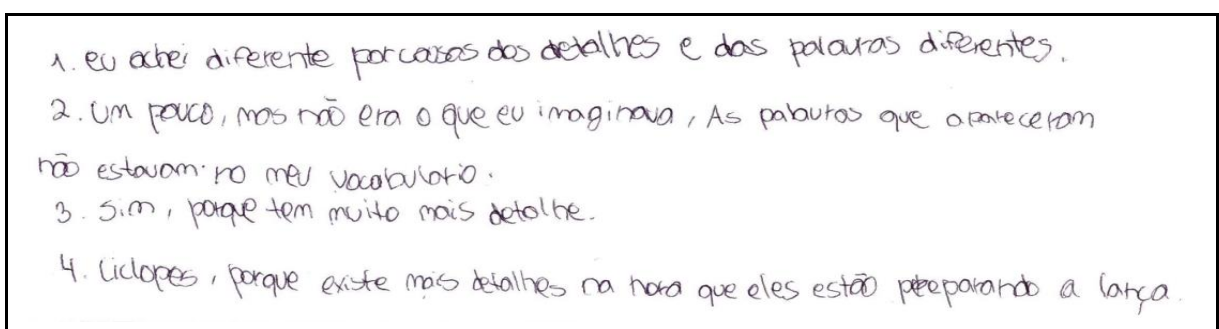 1. eu achei diferente por causos dos detalhes e das palavras diferentes.
2. Um pouco, mas não era o que eu imaginava, As palavras que apareceram
não estavam no meu vocabulario.
3. Sim, porque tem muito mais detalhe.
4. Ciclopes, porque existe mais detalhes na hora que eles estão preparando a lança.